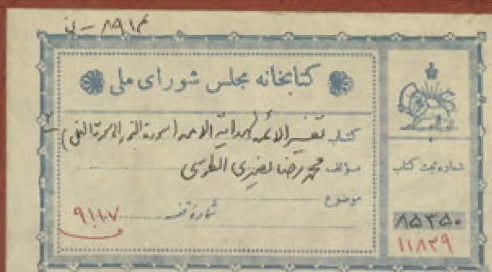 ۸۹۱۴ - ن
کتابخانه مجلس شورای ملی
کتاب تفسیر الائمه لهدایة الامه (سورة النور الی سورة النمل)
مؤلف محمد رضا نصیری الطوسی
موضوع
شماره قفسه ۹۱۱۰۷
شماره ثبت کتاب
۸۵۲۵۰
۱۱۸۳۹